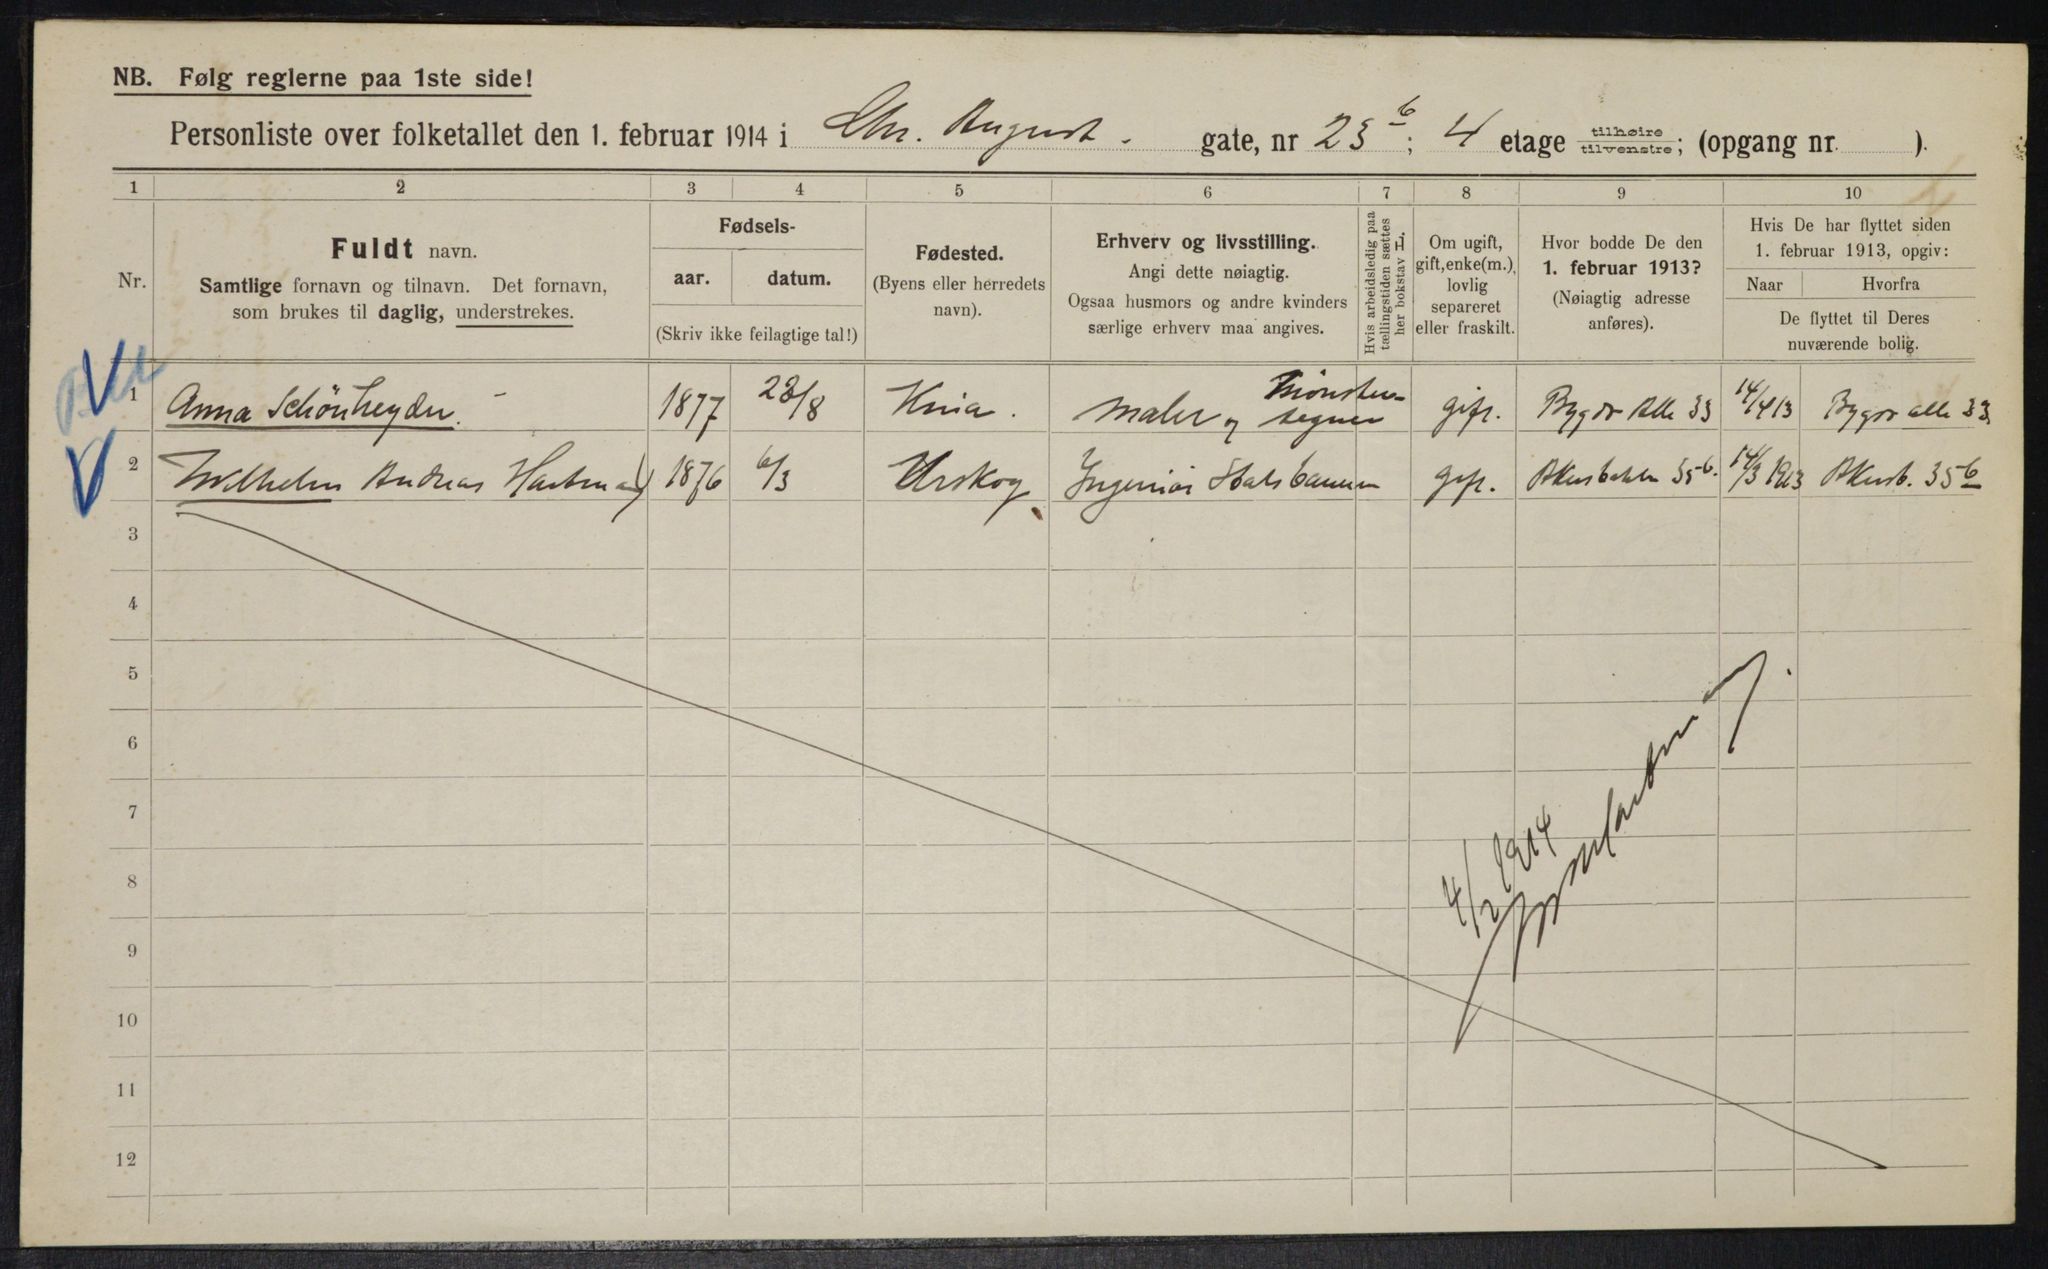 NB. Følg reglerne paa 1ste side!
Personliste over folketallet den 1. februar 1914 i Chr. August. gate, nr 23 b; 4 etage tilhøire tilvenstre; (opgang nr. ).
1 2 3 4 5 6 7 8 9 10
Nr.
Fuldt navn.
Samtlige fornavn og tilnavn. Det fornavn,
som brukes til daglig, understrekes.
Fødsels-
aar. datum.
(Skriv ikke feilagtige tal!)
Fødested.
(Byens eller herredets
navn).
Erhverv og livsstilling.
Angi dette nøiagtig.
Ogsaa husmors og andre kvinders
særlige erhverv maa angives.
Hvis arbeidsledig paa
tællingstiden sættes
her bokstav L.
Om ugift,
gift, enke(m.),
lovlig
separeret
eller fraskilt.
Hvor bodde De den
1. februar 1913?
(Nøiagtig adresse
anføres).
Hvis De har flyttet siden
1. februar 1913, opgiv:
Naar Hvorfra
De flyttet til Deres
nuværende bolig.
1 Anna Schönheyder. 1877 23/8 Kina. Maler og Mønster-tegner gift. Bygdø Alle 33 14/4 13 Bygdø alle 33
2 Wilhelm Andreas Hartman 1876 6/3 Urskog Ingeniør Statsbanen gift. Akersbakken 35 b. 14/3 1913 Akersb. 35 b
3
4
5
6
7
8
9
10
11
12
4/2 1914
Hartman